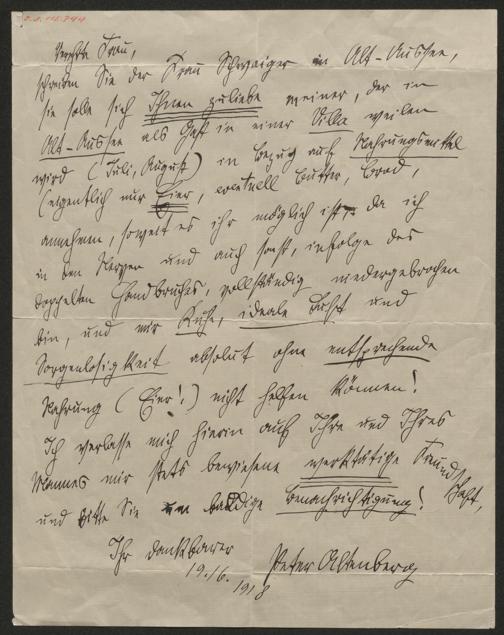 Verehrte Frau,
schreiben Sie der Frau Schwaiger in Alt-Aussee,
sie solle sich Ihnen zuliebe meiner, der in
Alt-Aussee als Gast in einer Villa weilen
wird (Juli, August) in Bezug auf Nahrungsmittel
(eigentlich nur Eier, eventuell Butter, Brod,
annehmen, soweit es ihr möglich ist, da ich
in den Nerven und auch sonst, infolge des
doppelten Handbruches, vollständig niedergebrochen
bin, und mir Ruhe, ideale Luft und
Sorgenlosigkeit absolut ohne entsprechende
Nahrung (Eier!) nicht helfen können!
Ich verlasse mich hierin auf Ihre und Ihres
Mannes mir stets bewiesene werktätige Freundschaft,
und bitte Sie um baldige Benachrichtigung!
Ihr dankbarer
Peter Altenberg
19./6. 1918